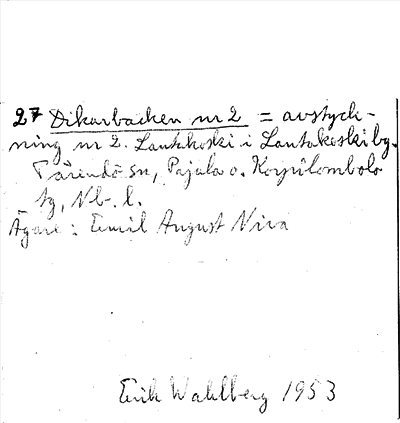 27 Dikarbacken nr 2 = avstyck-
ning nr 2. Lantakoski i Lantakoski by.
Tärendö sn, Pajala o. Korpilombolo
tg, Nb. l.
Ägare: Emil August Niva
Erik Wahlberg 1953